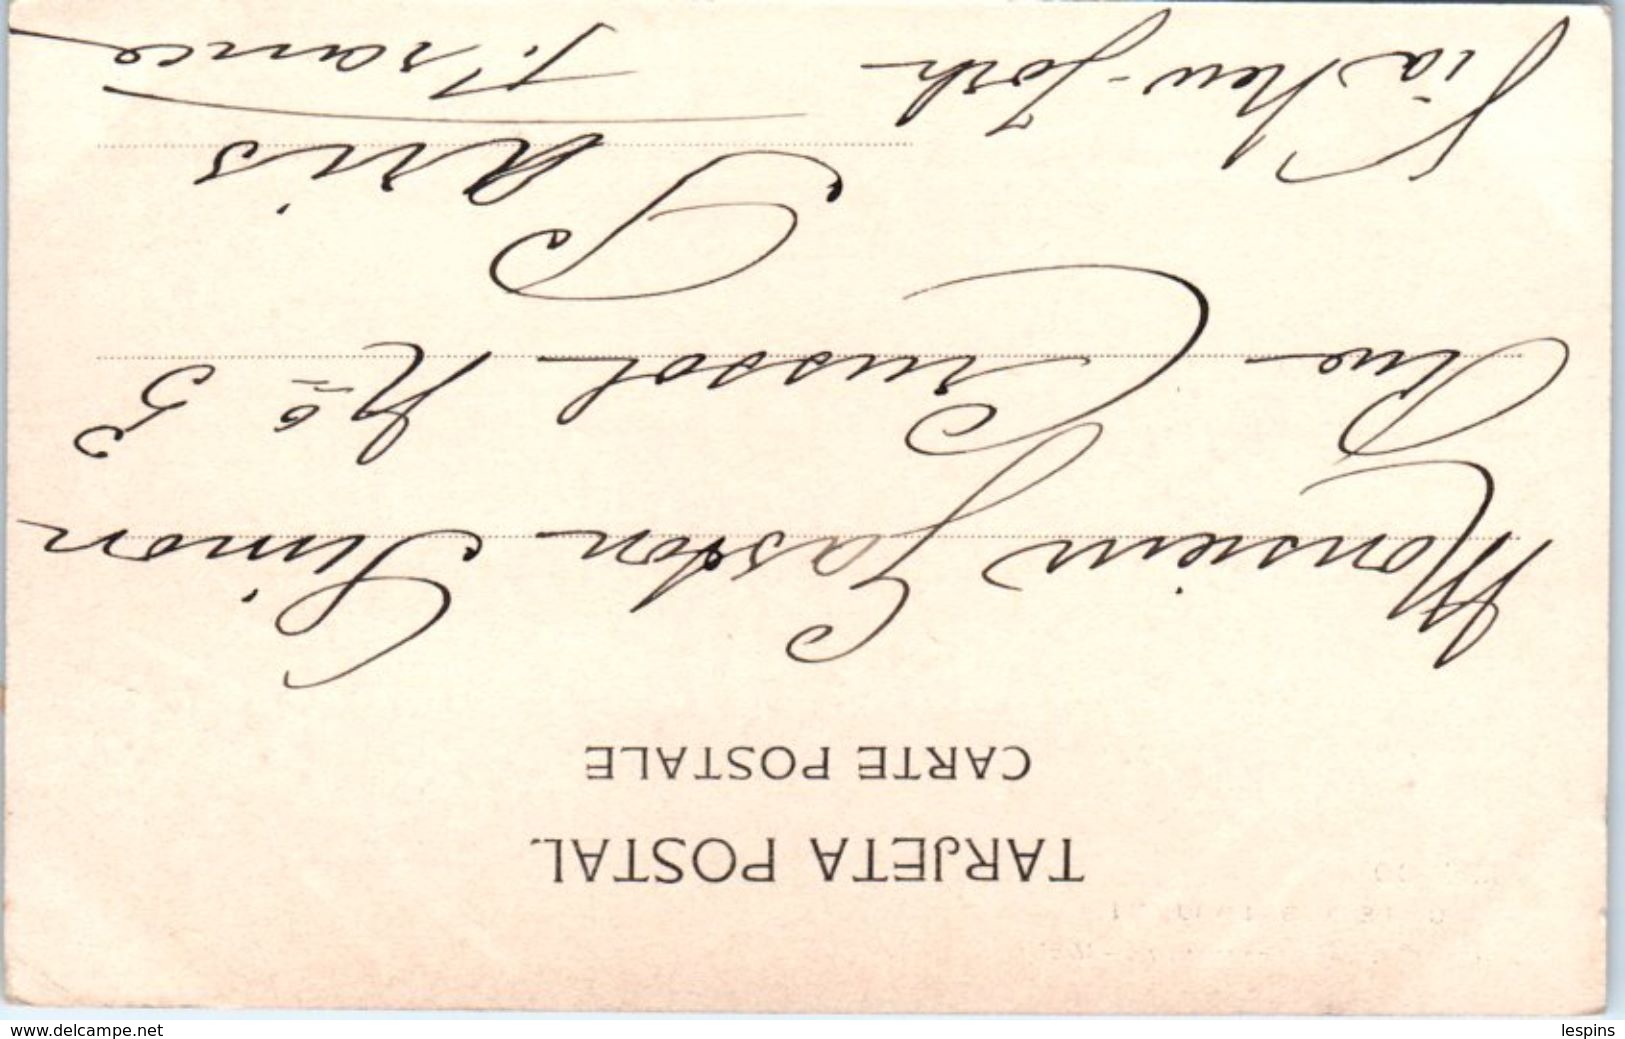 TARJETA POSTAL.
CARTE POSTALE
Monsieur Gaston Simon
Rue Crussol Nº 5
Paris
Via New-York France
www.delcampe.net
lespins